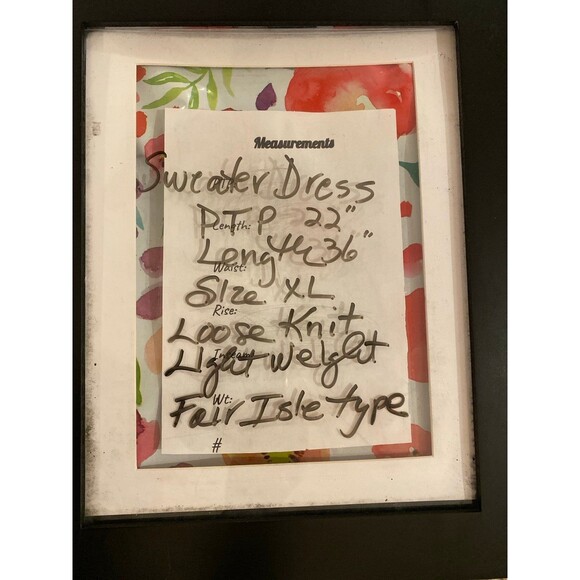 Measurements
Sweater Dress
PTP 22"
Length:
Length 36"
Waist:
Size XL
Rise:
Loose Knit
Light Weight
Inseam:
Wt:
Fair Isle type
#